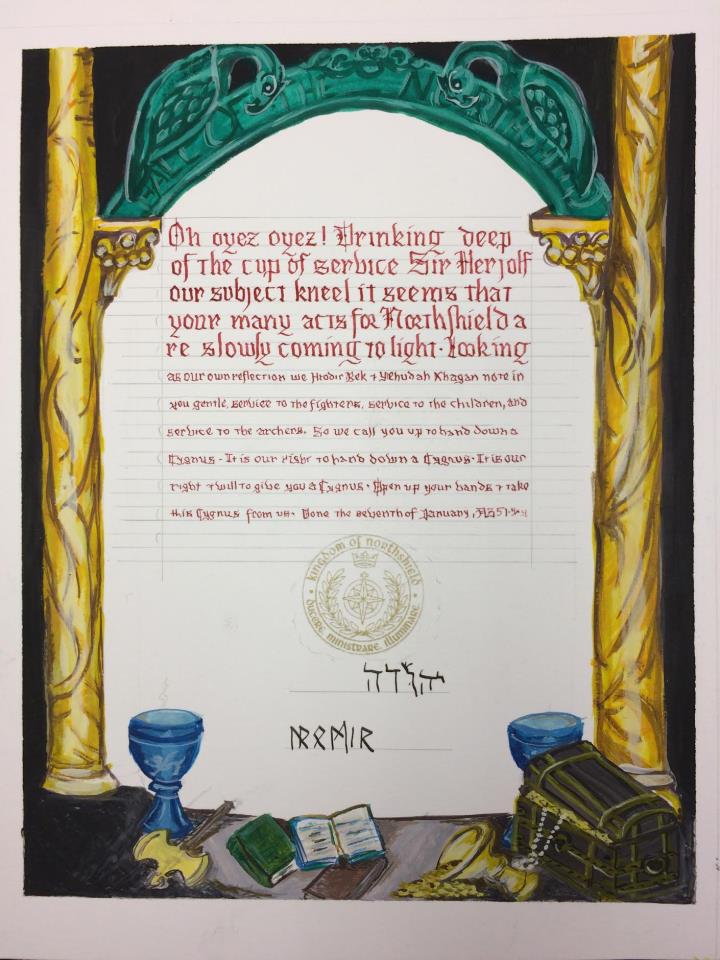 OF THE NORTH
Oh oyez oyez! Drinking deep
of the cup of service Sir Herjolf
our subject kneel it seems that
your many acts for Northshield a
re slowly coming to light. Looking
as our own reflection we Hrodir Rek + Yehudah Khagan note in
you gentle, service to the fighters, service to the children, and
service to the archers. So we call you up to hand down a
Cygnus - It is our right to hand down a Cygnus. It is our
right + will to give you a Cygnus. Open up your hands + take
this Cygnus from us. Done the seventh of January, AS 51.
kingdom of northshield
ducere, ministrare, illuminare
יהודה
ᚺᚱᛟᛞᛁᚱ